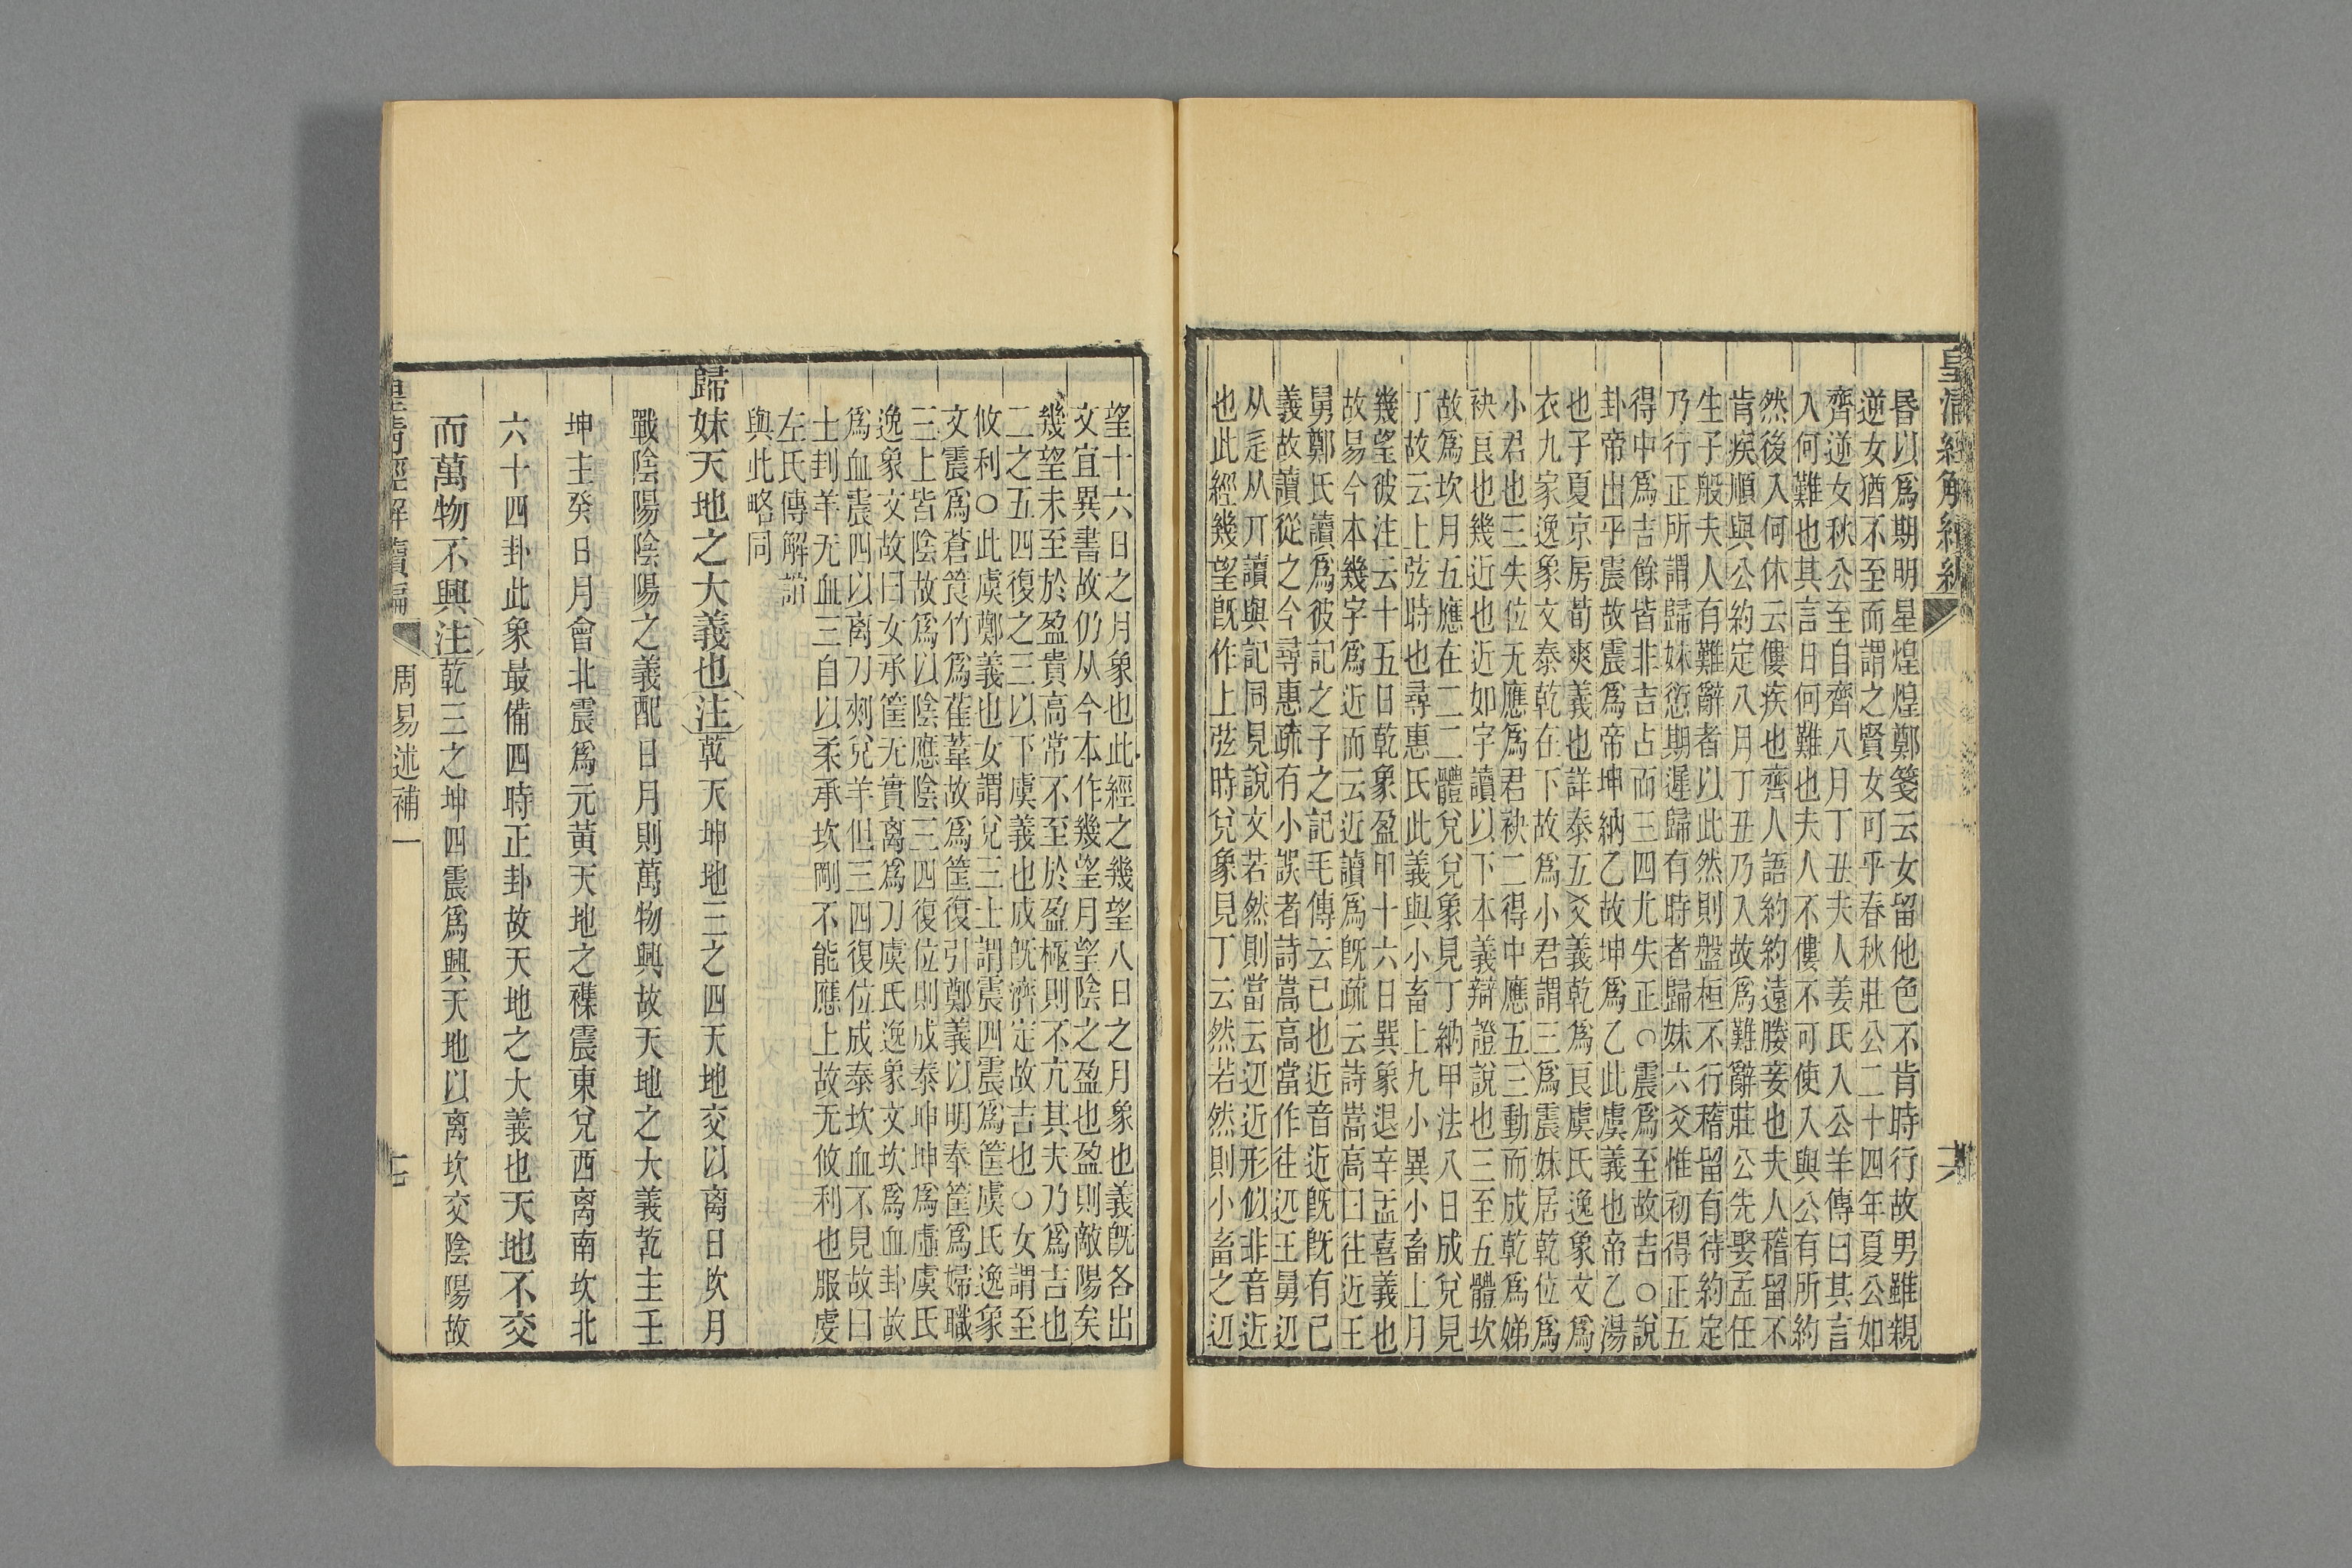 皇清經解續編
昬以爲期明星煌煌鄭箋云女留他色不肯時行故男雖親
逆女猶不至而謂之賢女可乎春秋莊公二十四年夏公如
齊逆女秋公至自齊八月丁丑夫人姜氏入公羊傳曰其言
入何難也其言日何難也夫人不僂不可使入與公有所約
然後入何休云僂疾也齊人語約約遠媵妾也夫人稽留不
肯疾順與公約定八月丁丑乃入故爲難辭莊公先娶孟任
生子般夫人有難辭者以此然則盤桓不行稽留有待約定
乃行正所謂歸妹愆期遲歸有時者歸妹六爻惟初得正五
得中爲吉餘皆非吉占而三四尤失正○震爲至故吉○說
卦帝出乎震故震爲帝坤納乙故坤爲乙此虞義也帝乙湯
也子夏京房荀爽義也詳泰五爻義乾爲良虞氏逸象文爲
衣九家逸象文泰乾在下故爲小君謂三爲震妹居乾位爲
小君也三失位无應爲君袂二得中應五三動而成乾爲娣
袂良也幾近也近如字讀以下本義辯證說也三至五體坎
故爲坎月五應在二二體兌兌象見丁納甲法八日成兌見
丁故云上弦時也尋惠氏此義與小畜上九小異小畜上月
幾望彼注云十五日乾象盈甲十六日巽象退辛孟喜義也
故易今本幾字爲近而云近讀爲旣疏云詩嵩高曰往近王
舅鄭氏讀爲彼記之子之記毛傳云已也近音近旣旣有已
義故讀從之今尋惠疏有小誤者詩嵩高當作往迊王舅迊
从辵从丌讀與記同見說文若然則當云迊近形似非音近
也此經幾望旣作上弦時兌象見丁云然若然則小畜之迊
十六
望十六日之月象也此經之幾望八日之月象也義旣各出
文宜異書故仍从今本作幾望月望陰之盈也盈則敵陽矣
幾望未至於盈貴高常不至於盈極則不亢其夫乃爲吉也
二之五四復之三以下虞義也成旣濟定故吉也○女謂至
攸利○此虞鄭義也女謂兌三上謂震四震爲筐虞氏逸象
文震爲蒼筤竹爲萑葦故爲筐復引鄭義以明奉筐爲婦職
三上皆陰故爲以陰應陰三四復位則成泰坤坤爲虛虞氏
逸象文故曰女承筐无實离爲刀虞氏逸象文坎爲血卦故
爲血震四以离刀刺兌羊但三四復位成泰坎血不見故曰
士刲羊无血三自以柔承坎剛不能應上故无攸利也服虔
左氏傳解誼
與此略同
歸妹天地之大義也注乾天坤地三之四天地交以离日坎月
戰陰陽陰陽之義配日月則萬物興故天地之大義乾主壬
坤主癸日月會北震爲元黃天地之襍震東兌西离南坎北
六十四卦此象最備四時正卦故天地之大義也天地不交
而萬物不興注乾三之坤四震爲興天地以离坎交陰陽故
皇清經解續編
周易述補一
十七